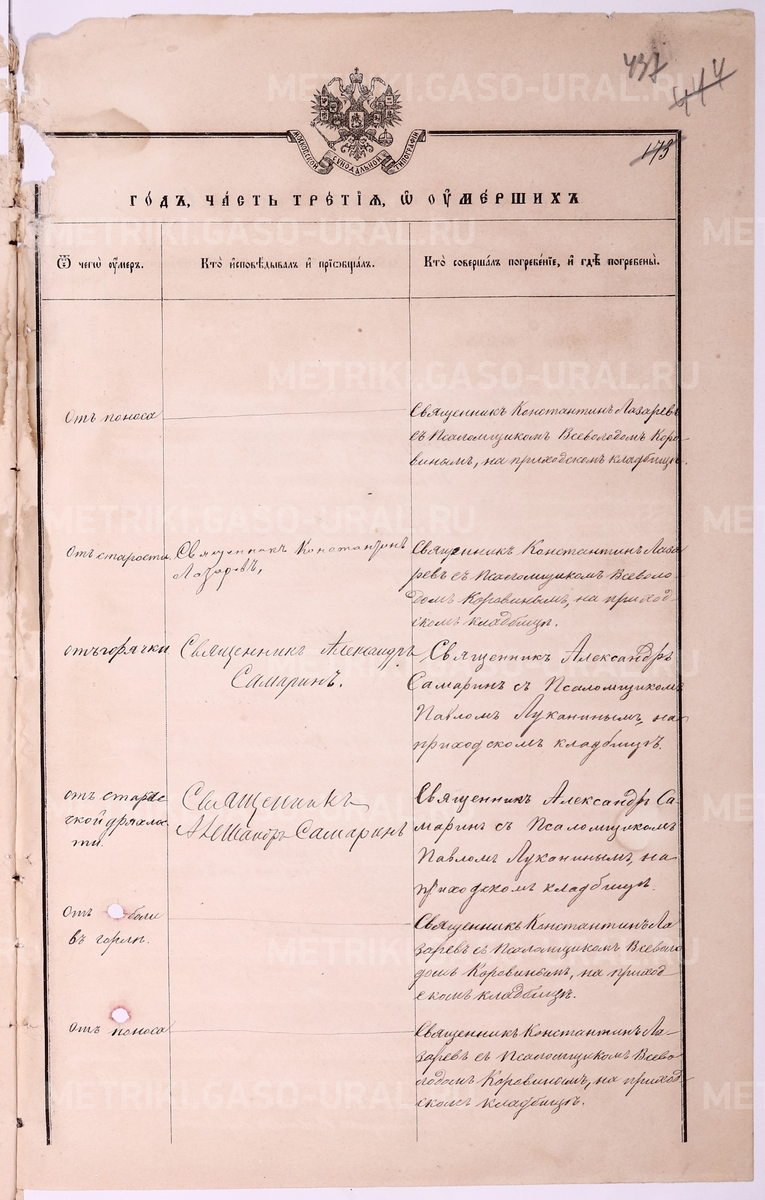 437
444
173
МОСКОВСКОЙ СѴНОДАЛЬНОЙ ТИПОГРАФІИ
ГО́ДЪ, ЧА́СТЬ ТРЕ́ТІѦ, Ѡ҆ ОУ҆МЕ́РШИХЪ
Ѿ чегѡ̀ оу҆́меръ.
Кто̀ и҆сповѣ́дывалъ и҆ прїѡбща́лъ.
Кто̀ соверша́лъ погребе́нїе, и҆ гдѣ̀ погребены̀.
Отъ поноса
Священникъ Константинъ Лазаревъ
съ Псаломщикомъ Всеволодомъ Коро-
винымъ, на приходскомъ кладбищѣ.
Отъ старости.
Священникъ Константинъ
Лазаревъ,
Священникъ Константинъ Лаза
ревъ съ Псаломщикомъ Всеволо-
домъ Коровинымъ, на приход-
скомъ кладбищѣ.
отъ горячки
Священникъ Александръ
Самаринъ.
Священникъ Александръ
Самаринъ съ Псаломщикомъ
Павломъ Луканинымъ, на
приходскомъ кладбищѣ.
отъ старче
ской дряхлос
ти.
Священникъ
Александръ Самаринъ
Священникъ Александръ Са
маринъ съ Псаломщикомъ
Павломъ Луканинымъ, на
приходскомъ кладбищѣ.
Отъ боли
въ горлѣ.
Священникъ Константинъ Ла
заревъ съ Псаломщикомъ Всеволо
домъ Коровинымъ, на приход
скомъ кладбищѣ.
Отъ поноса
Священникъ Константинъ Ла-
заревъ съ Псаломщикомъ Всево
лодомъ Коровиномъ, на приход
скомъ кладбищѣ.
METRIKI.GASO-URAL.RU